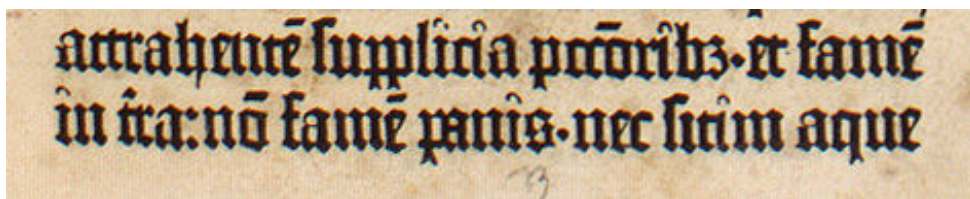 attrahentē supplicia pccōribꝫ·et famē
in t̄ra: nō famē panis·nec sitim aque